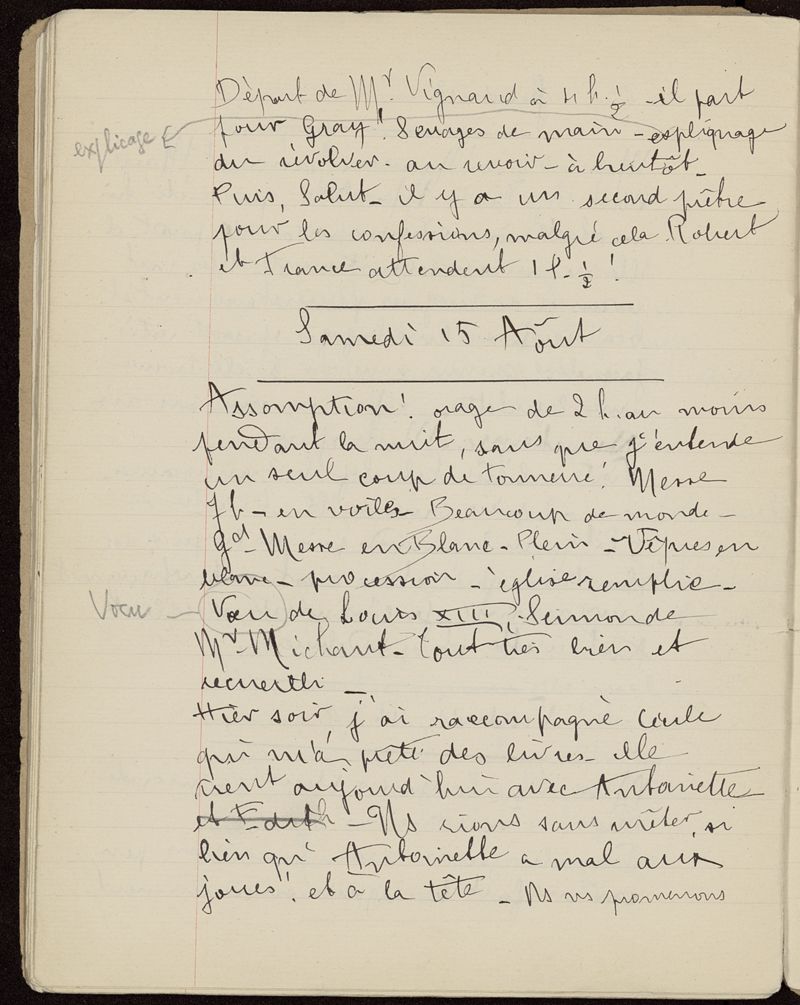 Départ de Mr. Vignaud à 4 h. 1/2 - il part
pour Gray! Serrages de main - esplignage
explicage
du révolver. au revoir - à bientôt -
Puis, Salut - il y a un second prêtre
pour les confessions, malgré cela Robert
et France attendent 1 h. 1/2 !
Samedi 15 Août
Assomption! orage de 2 h. au moins
pendant la nuit, sans que j'entende
un seul coup de tonnerre! Messe
7h - en voiles - Beaucoup de monde -
Gd - Messe en Blanc - Plein - Vêpres en
blanc - procession - église remplie -
Vœu
Vœu de Louis XIII, Sermon de
Mr Michaut - Tout très bien et
recueilli -
Hier soir, j'ai raccompagné Cécile
qui m'a prêté des livres - elle
vient aujourd'hui avec Antoinette
et Edith - Ns rions sans arrêter, si
bien qu' Antoinette a mal aux
joues! et à la tête - Ns ns promenons